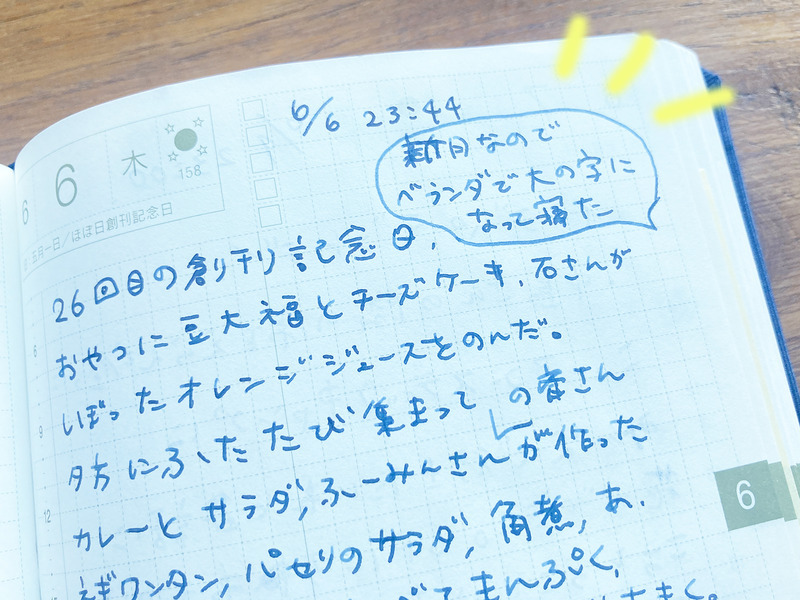 6
6 木
158
五月一日/ほぼ日創刊記念日
6/6 23:44
新月なので
ベランダで大の字に
なって寝た
26回目の創刊記念日、
おやつに豆大福とチーズケーキ、石さんが
しぼったオレンジジュースをのんだ。
夕方にふたたび集まって
の斉さん
カレーとサラダ、ふーみんさんが作った
ねぎワンタン、パセリのサラダ、角煮、あ、
べてまんぷく、
6
9
12
6